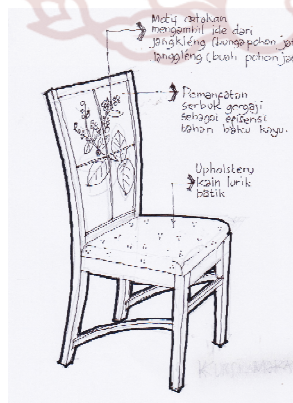 Motif patahan
mengambil ide dari
jangkleng (bunga pohon ja
janggleng (buah pohon ja
Pemanfatan
serbuk gergaji
sebagai efisensi
bahan baku kayu.
Upholstery
kain lurik
batik